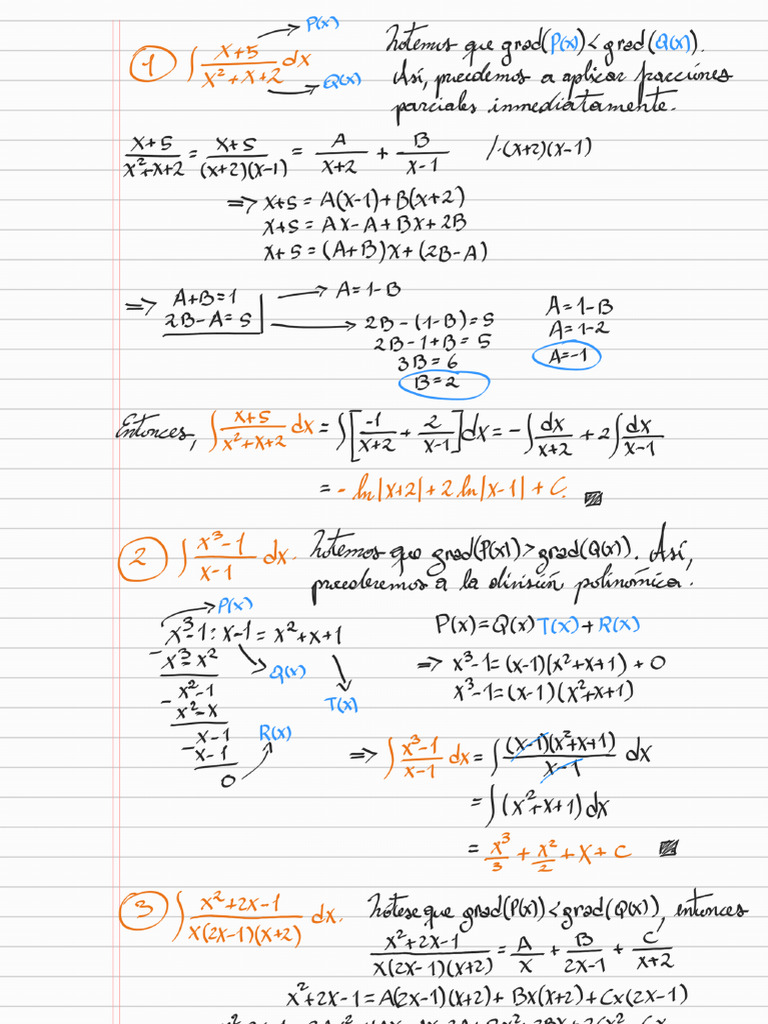 P(x)
① ∫ (x+5)/(x²+x+2) dx
Q(x)
Notemos que grad(P(x)<grad(Q(x)).
Así, procedemos a aplicar fracciones
parciales inmediatamente.
(x+5)/(x²+x+2) = (x+5)/((x+2)(x-1)) = A/(x+2) + B/(x-1) /·(x+2)(x-1)
⇒ x+5 = A(x-1)+B(x+2)
x+5 = Ax-A+Bx+2B
x+5 = (A+B)x+(2B-A)
⇒ A+B=1 → A=1-B
2B-A=5 → 2B-(1-B)=5
2B-1+B=5
3B=6
B=2
A=1-B
A=1-2
A=-1
Entonces, ∫ (x+5)/(x²+x+2) dx = ∫[-1/(x+2) + 2/(x-1)]dx = -∫dx/(x+2) + 2∫dx/(x-1)
= -ln|x+2|+2ln|x-1|+C.
② ∫ (x³-1)/(x-1) dx. Notemos que grad(P(x))>grad(Q(x)). Así,
procederemos a la división polinómica.
P(x)
x³-1 : x-1 = x²+x+1
- x³-x²
x²-1
- x²-x
x-1
- x-1
0
Q(x)
T(x)
R(x)
P(x)=Q(x)T(x)+R(x)
⇒ x³-1=(x-1)(x²+x+1)+0
x³-1=(x-1)(x²+x+1)
⇒ ∫ (x³-1)/(x-1) dx = ∫ ((x-1)(x²+x+1))/(x-1) dx
= ∫(x²+x+1)dx
= x³/3 + x²/2 + x + C
③ ∫ (x²+2x-1)/(x(2x-1)(x+2)) dx. Nótese que grad(P(x))<grad(Q(x)), entonces
(x²+2x-1)/(x(2x-1)(x+2)) = A/x + B/(2x-1) + C/(x+2)
x²+2x-1=A(2x-1)(x+2)+Bx(x+2)+Cx(2x-1)